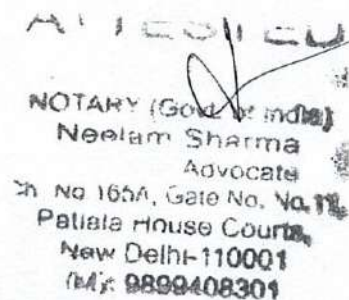 ATTESTED
NOTARY (Govt. of India)
Neelam Sharma
Advocate
Ch. No 165A, Gate No. No. 11,
Patiala House Courts,
New Delhi-110001
(M): 9899408301